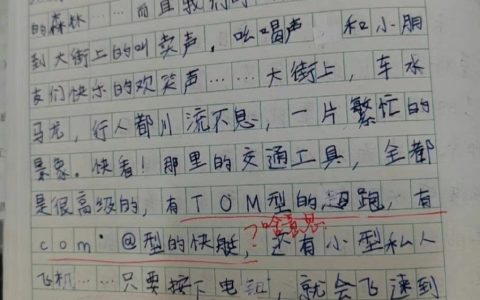 的森林……而且我们
到大街上的叫卖声，吆喝声 和小朋
友们快乐的欢笑声……大街上，车水
马龙，行人都川流不息，一片繁忙的
景象。快看！那里的交通工具，全都
是很高级的，有TOM型的迅跑，有
啥意思
com·@型的快艇，还有小型私人
飞机……只要按下电钮，就会飞速到